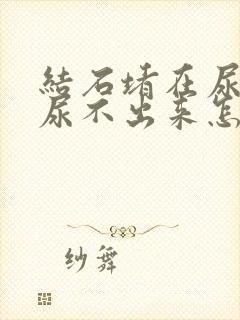 結石堵在尿
尿不出来怎
纱舞